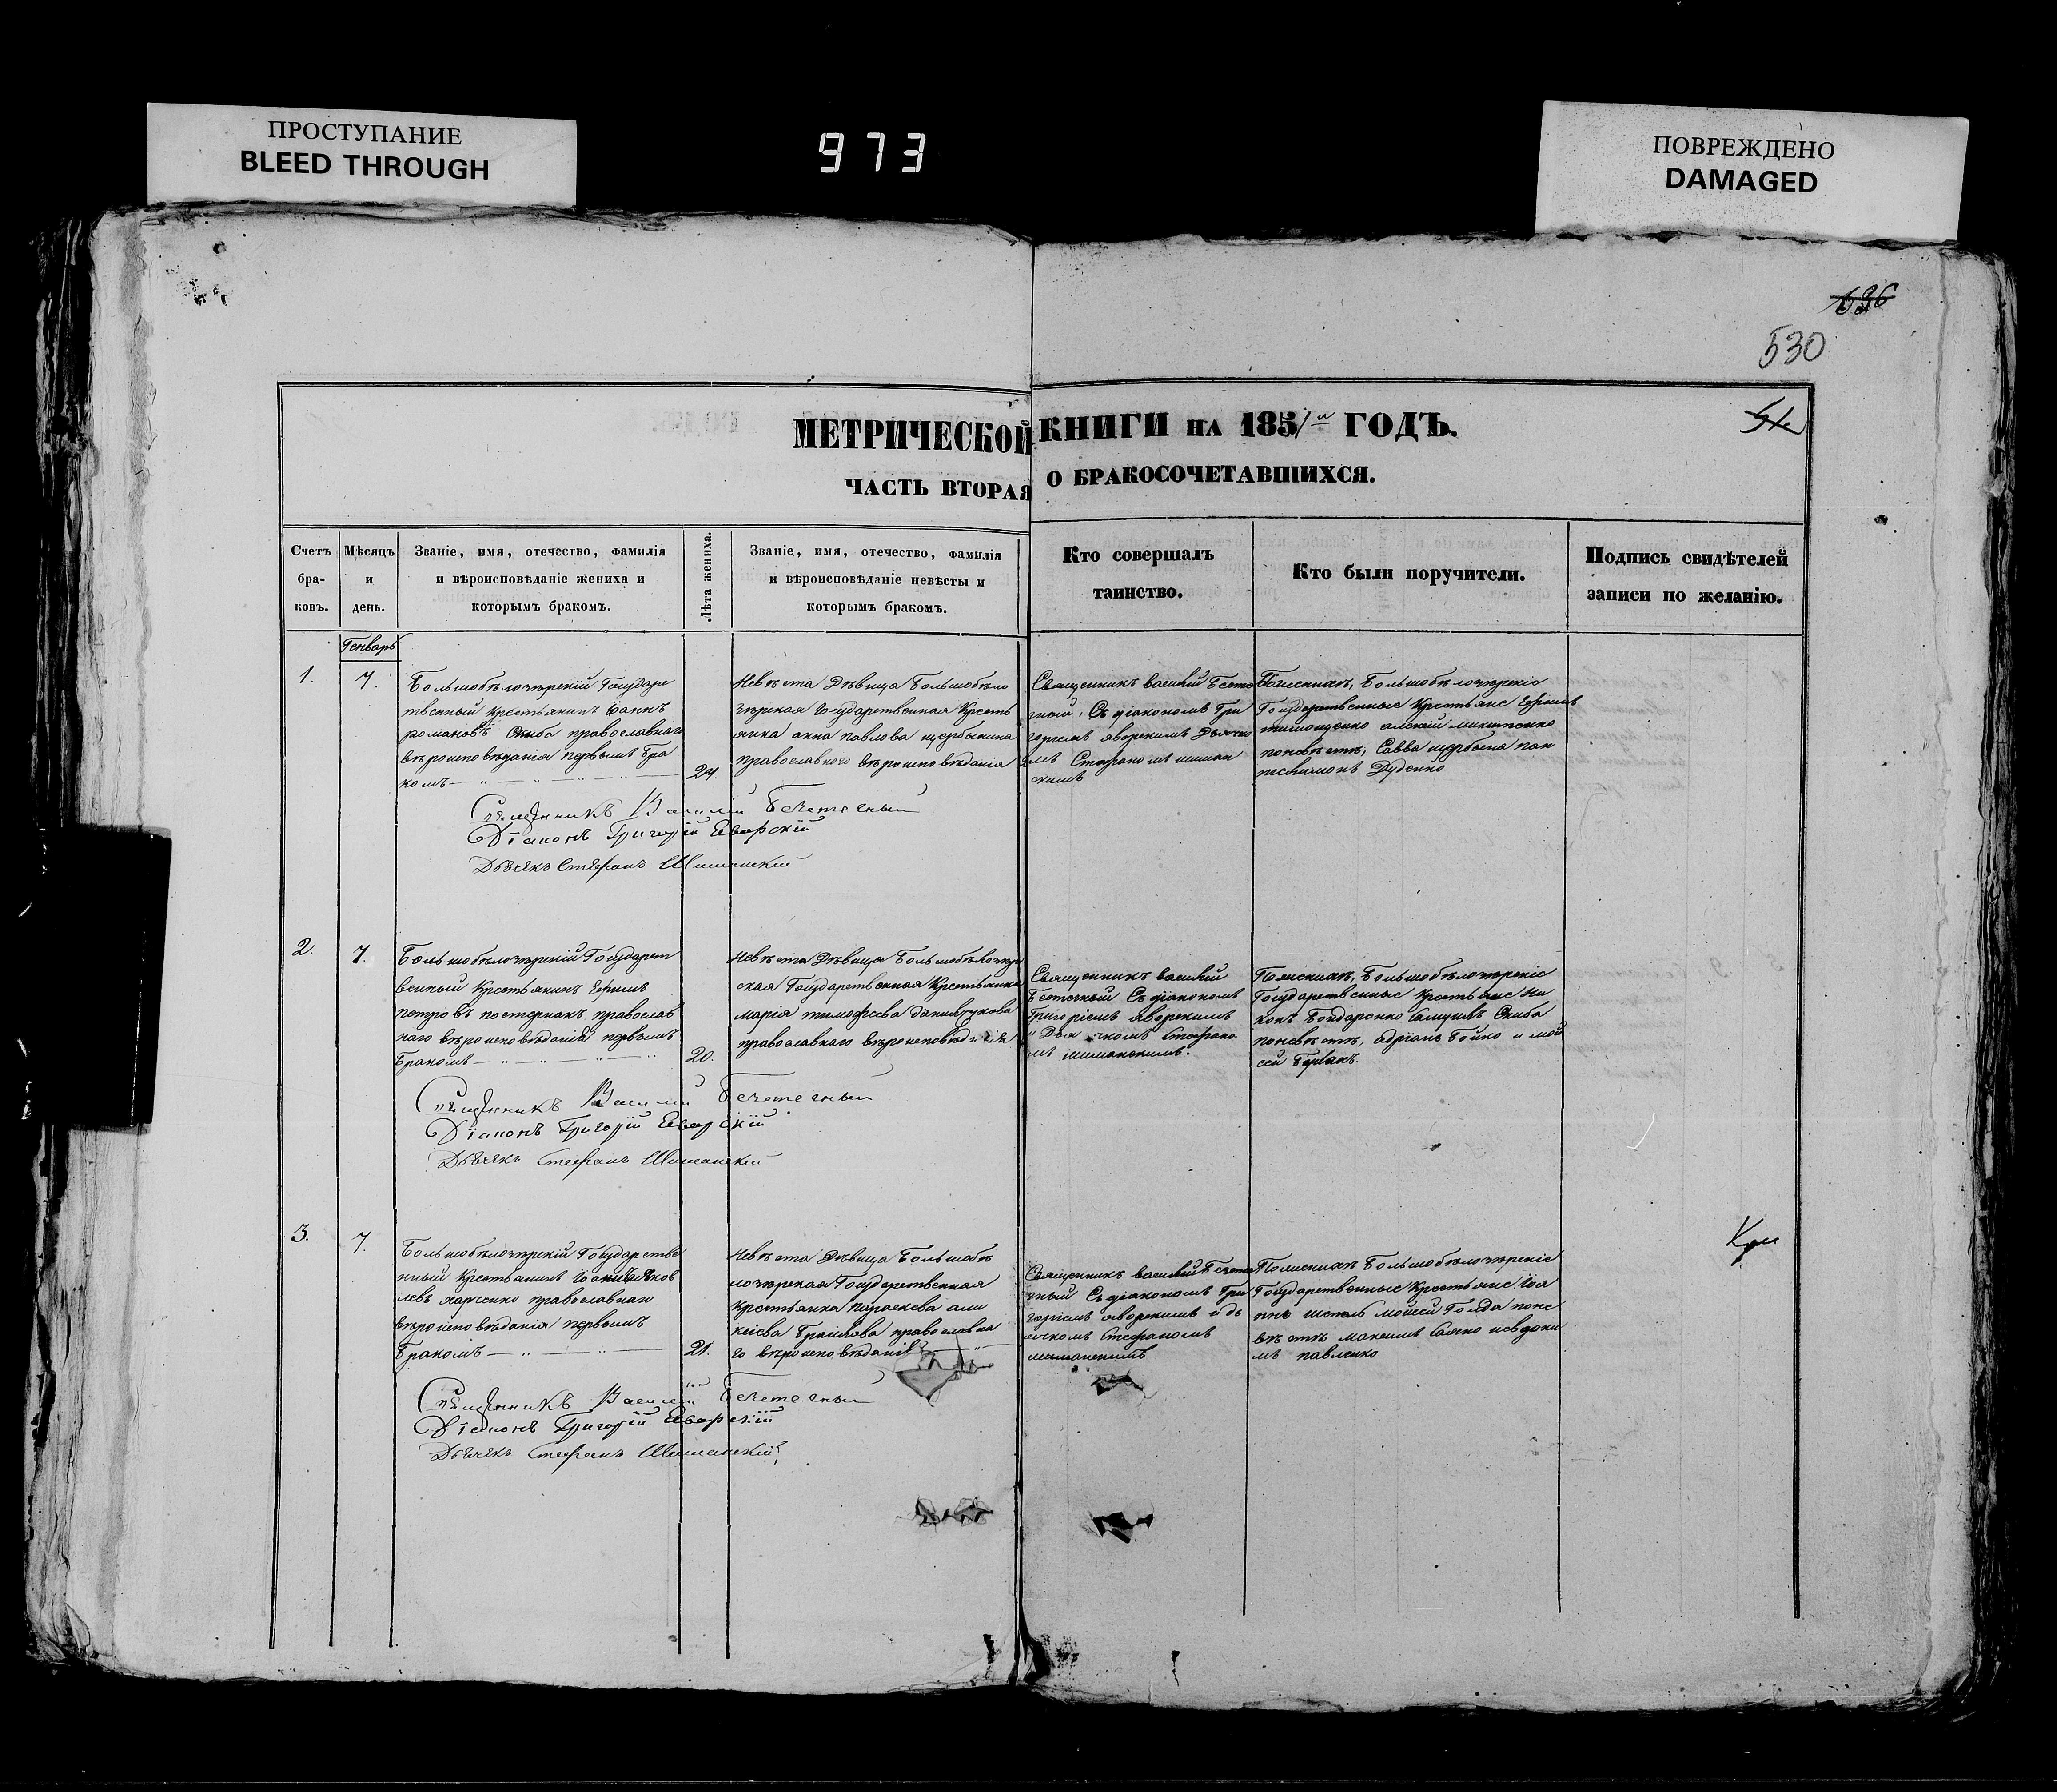 ПРОСТУПАНИЕ
BLEED THROUGH
973
ПОВРЕЖДЕНО
DAMAGED
530
МЕТРИЧЕСКОЙ КНИГИ НА 1851 ГОДЪ.
ЧАСТЬ ВТОРАЯ О БРАКОСОЧЕТАВШИХСЯ.
Счетъ
бра-
ковъ.
Мѣсяцъ
и
день.
Званіе, имя, отечество, фамилія
и вѣроисповѣданіе жениха и
которымъ бракомъ.
Лѣта жениха.
Званіе, имя, отечество, фамилія
и вѣроисповѣданіе невѣсты и
которымъ бракомъ.
Кто совершалъ
таинство.
Кто были поручители.
Подпись свидѣтелей
записи по желанію.
Генварь
1.
7.
Большобѣлозѣрскій Государс
твенный Крестьянинъ Іоаннъ
романовъ Скиба православнаго
вѣроисповѣданія первымъ бра
комъ
24.
Невѣста Дѣвица Большобѣло
зѣрская Государственная Кресть
янка анна павлова щербынина
православнаго вѣроисповѣданія
Священникъ василій
Съ діакономъ Гри
горіемъ яворскимъ
Стефаномъ шиман
скимъ
Большобѣлозѣрскіе
Государственные Крестьяне Ефимъ
тимощенко
поневѣстѣ, Савва щербына пан
телимонъ Дуденко
Священникъ Василій
Діаконъ Григорій Яворскій
Дьячекъ Стефанъ Шиманскій
2.
7.
Большобѣлозѣрскій Государст
венный Крестьянинъ Ефимъ
петровъ пастернакъ православ
наго вѣроисповѣданія первымъ
бракомъ
20.
Невѣста Дѣвица Большобѣлозѣр
ская Государственная Крестьянка
марія тимофеева
православнаго вѣроисповѣданія
Священникъ василій
Съ діакономъ
Григоріемъ яворскимъ
Стефано
мъ шиманскимъ.
Большобѣлозѣрскіе
Государственные Крестьяне Ни
конъ Бондаренко Самуилъ Скиба
поневѣстѣ, адріанъ Бойко и мой
сей
Священникъ Василій
Діаконъ Григорій Яворскій
Дьячекъ Стефанъ Шиманскій
3.
7.
Большобѣлозѣрскій Государстве
нный Крестьянинъ Іоаннъ Яков
левъ харченко православнаго
вѣроисповѣданія первымъ
бракомъ
21.
Невѣста Дѣвица Большобѣ
лозѣрская Государственная
Крестьянка параскева
православна
го вѣроисповѣданія
Священникъ василій
Съ діакономъ Гри
горіемъ яворскимъ и дь
ячкомъ Стефаномъ
шиманскимъ
Большобѣлозѣрскіе
Государственные Крестьяне Іоа
ннъ мойсей поне
вѣстѣ максимъ иевдоки
мъ павленко
Священникъ Василій
Діаконъ Григорій Яворскій
Дьячекъ Стефанъ Шиманскій